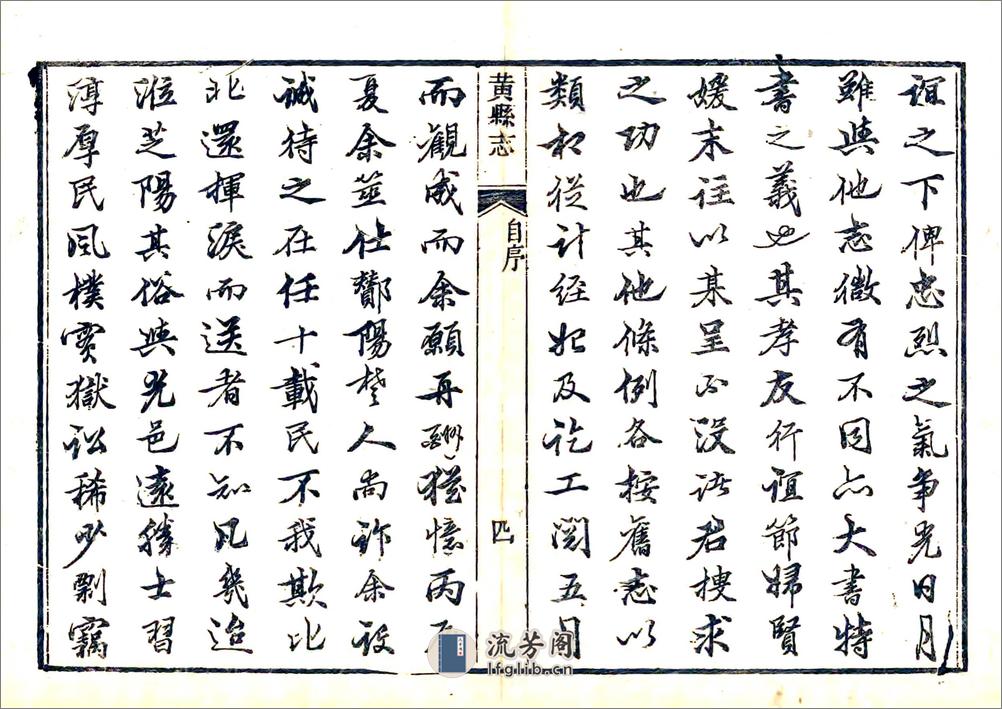 誼之下俾忠烈之氣爭光日月
雖與他志微有不同亦大書特
書之義也其孝友行誼節婦賢
媛末注以某呈不沒諸君搜求
之功也其他條例各按舊志以
類相從計經始及訖工閱五月
黃縣志
自序
四
而觀成而余願再酬猶憶丙
夏余莅仕酇陽楚人尚詐余設
誠待之在任十載民不我欺比
北還揮淚而送者不知凡幾迨
涖芝陽其俗與光邑遠勝士習
淳厚民風樸實獄訟稀少剽竊
流芳阁
lfglib.cn